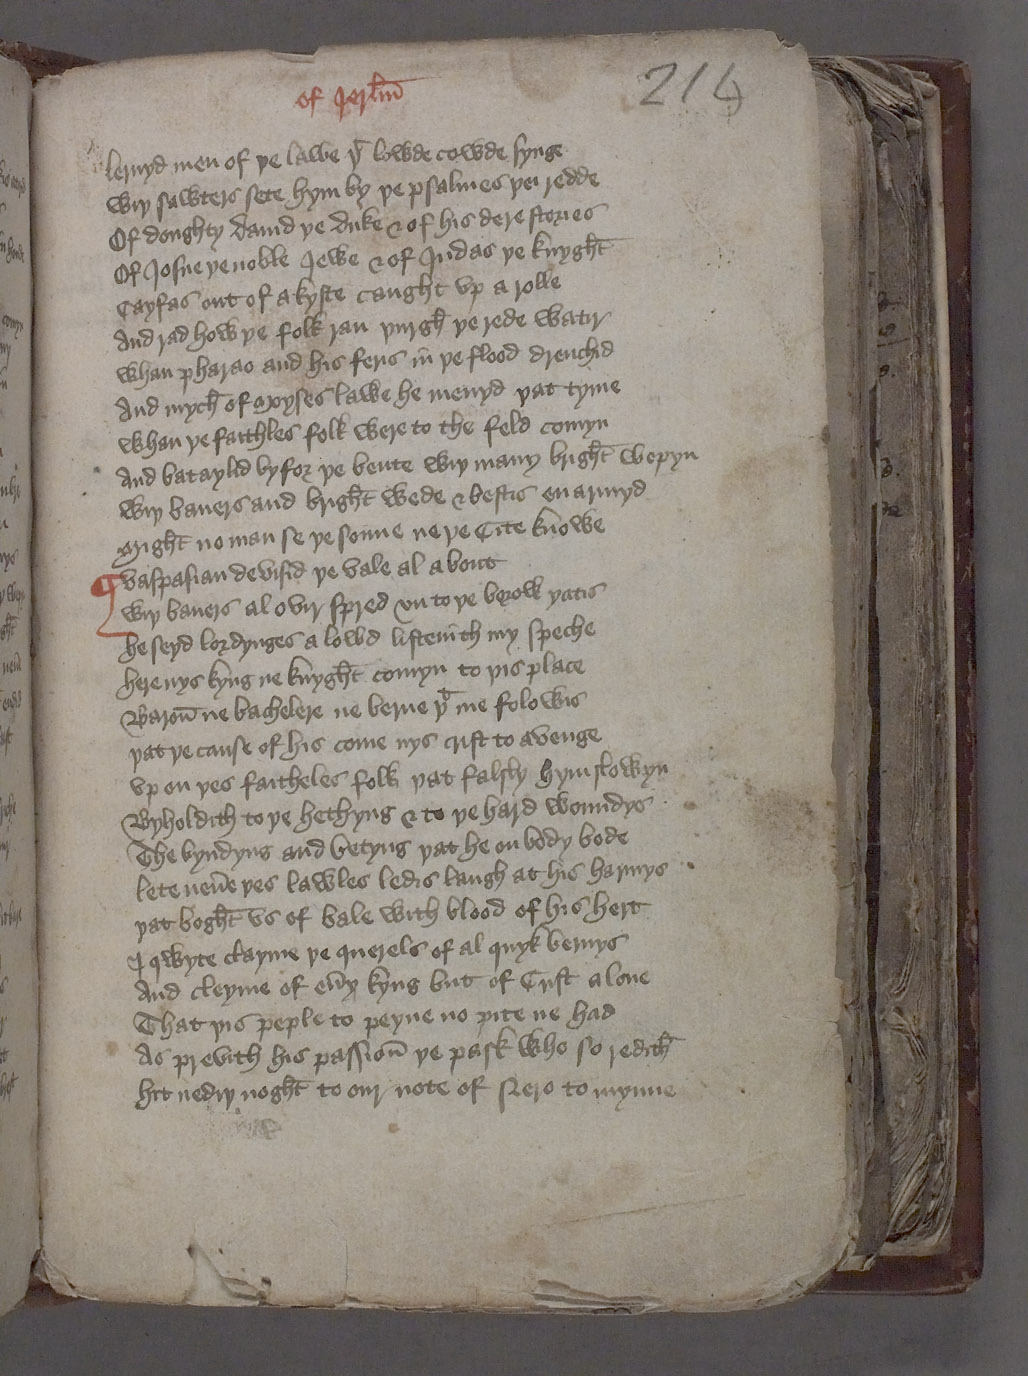 of Jerlm̄
214
lernyd men of þe lawe þt lowde cowde synge
wiþ sawters sete hym by þe psalmes þei redde
Of doughty dauid þe duke & of his dere stories
Of Josue þe noble Jewe & of Judas þe knyght
Cayfas out of a kyste caught vp a rolle
And rad how þe folk ran þurgh þe rede watir
whan pharao and his feris in þe flood drenchid
And mych of Moyses lawe he menyd þat tyme
whan þe faithles folk were to the feld comyn
And bataylid byfor þe bente wiþ many bright wepyn
wiþ baners and bright wede & bestis enarmyd
Might no man se þe sonne ne þe Cite knowe
¶ vaspasian devisid þe vale al about
wiþ baners al ovir spred vn to þe berow yatis
he seyd lordynges a lowd listenith my speche
here nys kyng ne knyght comyn to þis place
Baron̄ ne bachelere ne berne þt me folowis
þat þe cause of his come nys crist to avenge
vp on þes faitheles folk þat falsly hym slowyn
Byholdith to þe hethyng & to þe hard woundys
The byndyng and betyng þat he on body bode
lete neue þes lawles ledis laugh at his harmys
þat boght vs of bale with blood of his hert
I qwyte clayme þe querels of al quyk bernys
And cleyme of eūy kyng but of Crist alone
That þis peple to peyne no pite ne had
As previth his passion̄ þe pask who so redith
hit nediþ noght to our note of Nero to mynne